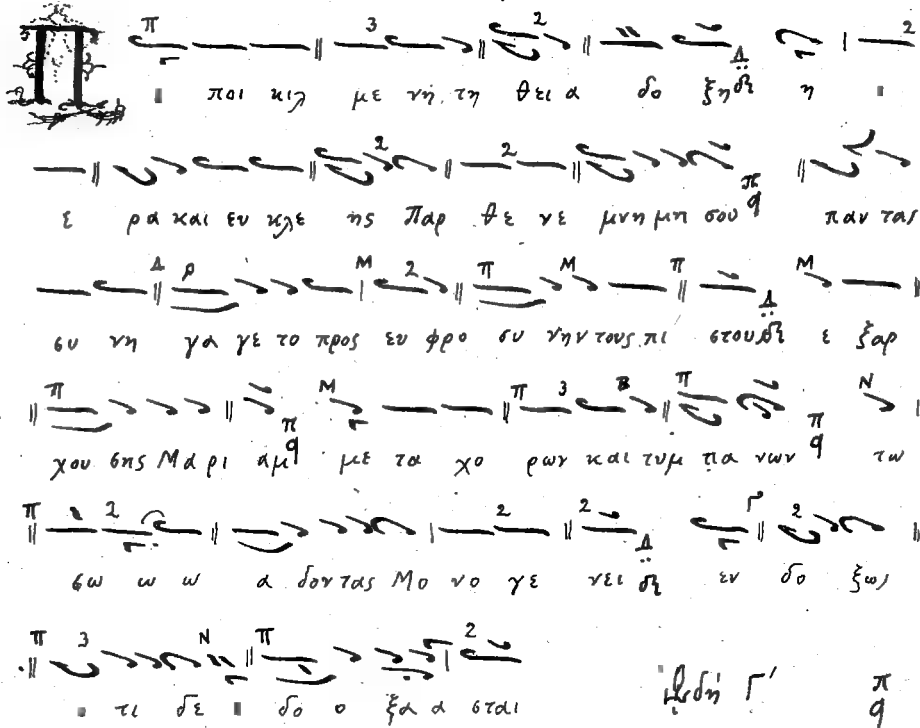 Π ποι κιλ με νη τη θει α δο ξη δι η ι
ε ρα και ευ κλε ης Παρ θε νε μνη μη σου παν τας
συ νη γα γε το προς ευ φρο συ νην τους πι στους δι ε ξαρ
χου σης Μα ρι αμ με τα χο ρων και τυμ πα νων τω
σω ω ω α δον τας Μο νο γε νει δι εν δο ξως
τι δε δο ο ξα α σται
ωδή Γ'